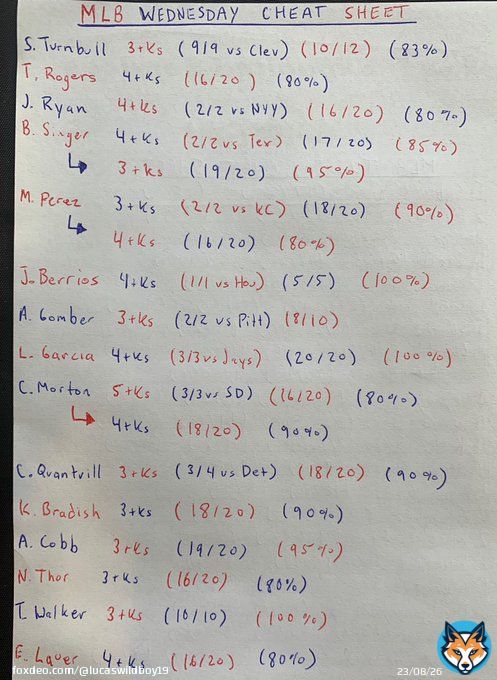 MLB WEDNESDAY CHEAT SHEET
S. Turnbull 3+Ks (9/9 vs Clev) (10/12) (83%)
T. Rogers 4+Ks (16/20) (80%)
J. Ryan 4+Ks (2/2 vs NYY) (16/20) (80%)
B. Singer 4+Ks (2/2 vs Tex) (17/20) (85%)
3+Ks (19/20) (95%)
M. Perez 3+Ks (2/2 vs KC) (18/20) (90%)
4+Ks (16/20) (80%)
J. Berrios 4+Ks (1/1 vs Hou) (5/5) (100%)
A. Gomber 3+Ks (2/2 vs Pitt) (8/10)
L. Garcia 4+Ks (3/3 vs Jays) (20/20) (100%)
C. Morton 5+Ks (3/3 vs SD) (16/20) (80%)
4+Ks (18/20) (90%)
C. Quantrill 3+Ks (3/4 vs Det) (18/20) (90%)
K. Bradish 3+Ks (18/20) (90%)
A. Cobb 3+Ks (19/20) (95%)
N. Thor 3+Ks (16/20) (80%)
T. Walker 3+Ks (10/10) (100%)
E. Lauer 4+Ks (16/20) (80%)
foxdeo.com/@lucaswildboy19
23/08/26